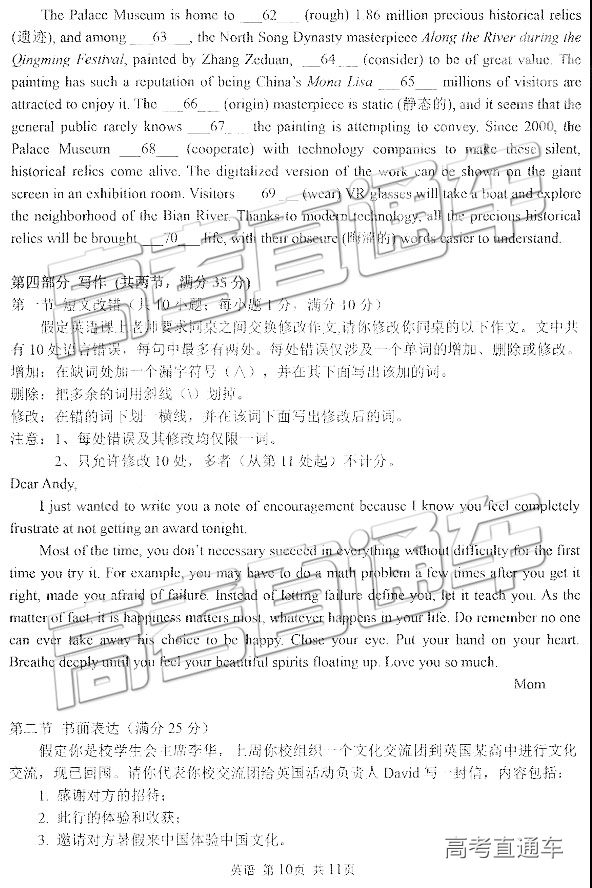 The Palace Museum is home to ___62___ (rough) 1.86 million precious historical relics
(遗迹), and among ___63___, the North Song Dynasty masterpiece Along the River during the
Qingming Festival, painted by Zhang Zeduan, ___64___ (consider) to be of great value. The
painting has such a reputation of being China's Mona Lisa ___65___ millions of visitors are
attracted to enjoy it. The ___66___ (origin) masterpiece is static (静态的), and it seems that the
general public rarely knows ___67___ the painting is attempting to convey. Since 2000, the
Palace Museum ___68___ (cooperate) with technology companies to make these silent,
historical relics come alive. The digitalized version of the work can be shown on the giant
screen in an exhibition room. Visitors ___69___ (wear) VR glasses will take a boat and explore
the neighborhood of the Bian River. Thanks to modern technology, all the precious historical
relics will be brought ___70___ life, with their obscure (晦涩的) words easier to understand.
第四部分 写作 (共两节，满分 35 分)
第一节 短文改错（共 10 小题；每小题 1 分，满分 10 分）
假定英语课上老师要求同桌之间交换修改作文,请你修改你同桌的以下作文。文中共
有 10 处语言错误，每句中最多有两处。每处错误仅涉及一个单词的增加、删除或修改。
增加：在缺词处加一个漏字符号（∧），并在其下面写出该加的词。
删除：把多余的词用斜线（\）划掉。
修改：在错的词下划一横线，并在该词下面写出修改后的词。
注意：1、每处错误及其修改均仅限一词。
2、只允许修改 10 处，多者（从第 11 处起）不计分。
Dear Andy,
I just wanted to write you a note of encouragement because I know you feel completely
frustrate at not getting an award tonight.
Most of the time, you don't necessary succeed in everything without difficulty for the first
time you try it. For example, you may have to do a math problem a few times after you get it
right, made you afraid of failure. Instead of letting failure define you, let it teach you. As the
matter of fact, it is happiness matters most, whatever happens in your life. Do remember no one
can ever take away his choice to be happy. Close your eye. Put your hand on your heart.
Breathe deeply until you feel your beautiful spirits floating up. Love you so much.
Mom
第二节 书面表达（满分 25 分）
假定你是校学生会主席李华，上周你校组织一个文化交流团到英国某高中进行文化
交流，现已回国。请你代表你校交流团给英国活动负责人 David 写一封信，内容包括：
1. 感谢对方的招待；
2. 此行的体验和收获；
3. 邀请对方暑假来中国体验中国文化。
英语 第 10页 共 11页
高考直通车
高考直通车
高考直通车